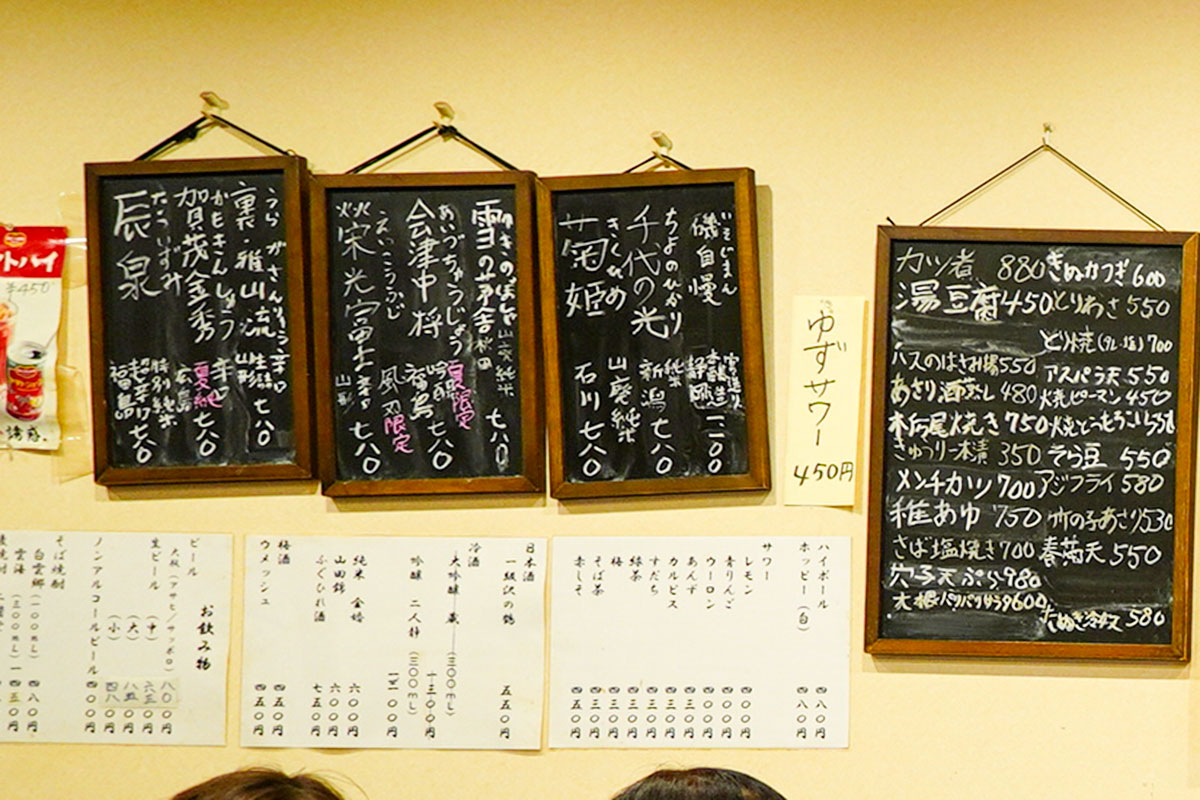 うら がさんりゅう 辛口
裏・雅山流 生詰 山形 七八〇
かもきんしゅう 辛口
賀茂金秀 夏純 広島 七八〇
たついずみ 特別純米
辰泉 超辛口 福島 七八〇
雪の茅舎 山廃純米 秋田 七八〇
あいづちゅうじょう 夏限定
会津中将 吟醸 福島 七八〇
えいこうふじ 風刃限定
栄光冨士 山形 七八〇
いそじまん
磯自慢 静岡 一、一〇〇
ちよのひかり 純米
千代の光 新潟 七八〇
きくひめ 山廃純米
菊姫 石川 七八〇
ゆずサワー 450円
カツ煮 880
湯豆腐 450
ハスのはさみ揚 550
あさり酒蒸し 480
栃尾焼き 750
きゅうり一本漬 350
メンチカツ 700
稚あゆ 750
さば塩焼き 700
穴子天ぷら 980
大根パリパリサラダ 600
きぬかつぎ 600
とりわさ 550
とり焼(タレ・塩) 700
アスパラ天 550
焼ピーマン 450
焼とうもろこし
そら豆 550
アジフライ 580
竹の子あさり 530
春菊天 550
たぬき冷奴 580
¥450
誘惑。
お飲み物
ビール
大瓶(アサヒ/サッポロ) 八〇〇円
生ビール (中) 六三〇円
(大) 八五〇円
(小) 四八〇円
ノンアルコールビール 四〇〇円
そば焼酎
白雲郷 (一〇〇mL) 四八〇円
雲海 (三〇〇mL)
日本酒
一級沢の鶴 五五〇円
冷酒
大吟醸 蔵 (三〇〇mL) 一三〇〇円
吟醸 二人静 (三〇〇mL)
純米 金婚 六〇〇円
山田錦 六〇〇円
ふぐひれ酒 七五〇円
梅酒 四五〇円
ウメッシュ 四五〇円
ハイボール 四八〇円
ホッピー(白) 四八〇円
サワー
レモン 四〇〇円
青りんご 四〇〇円
ウーロン 四〇〇円
あんず 四三〇円
カルピス 四三〇円
すだち 四三〇円
緑茶 四三〇円
梅 四三〇円
そば茶 四三〇円
赤しそ 四五〇円